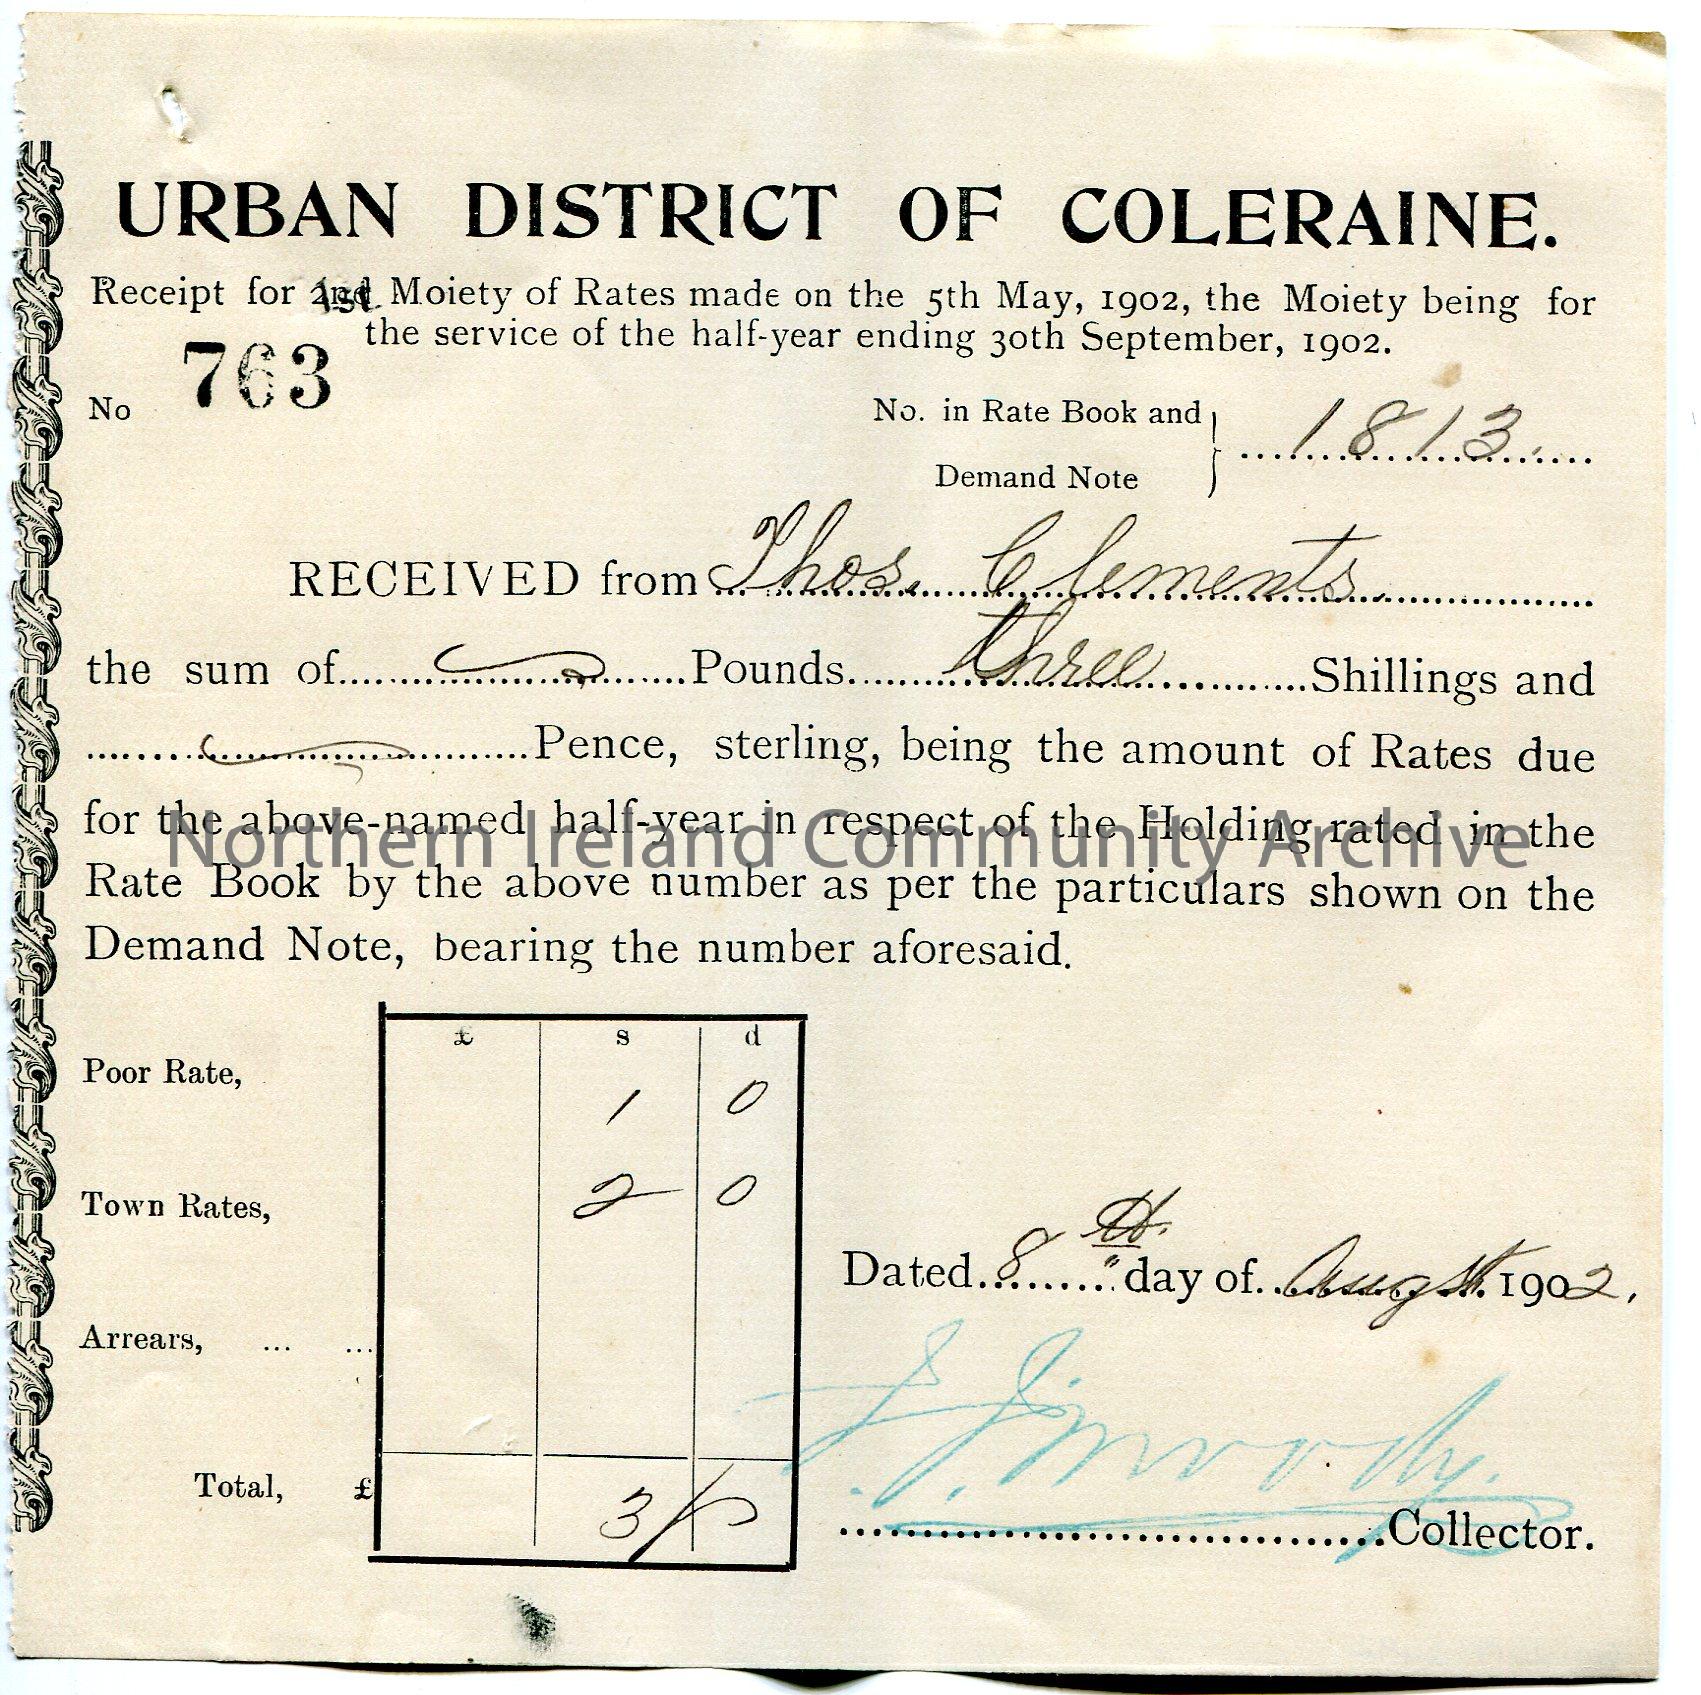 URBAN DISTRICT OF COLERAINE.
Receipt for 1st Moiety of Rates made on the 5th May, 1902, the Moiety being for
the service of the half-year ending 30th September, 1902.
No 763
No. in Rate Book and
Demand Note } 1813.
RECEIVED from Thos. Clements.
the sum of Pounds three Shillings and
Pence, sterling, being the amount of Rates due
for the above-named half-year in respect of the Holding rated in the
Northern Ireland Community Archive
Rate Book by the above number as per the particulars shown on the
Demand Note, bearing the number aforesaid.
£ s d
Poor Rate, 1 0
Town Rates, 2 0
Dated 8th day of August 1902.
Arrears, ... ...
Total, £ 3/
Collector.